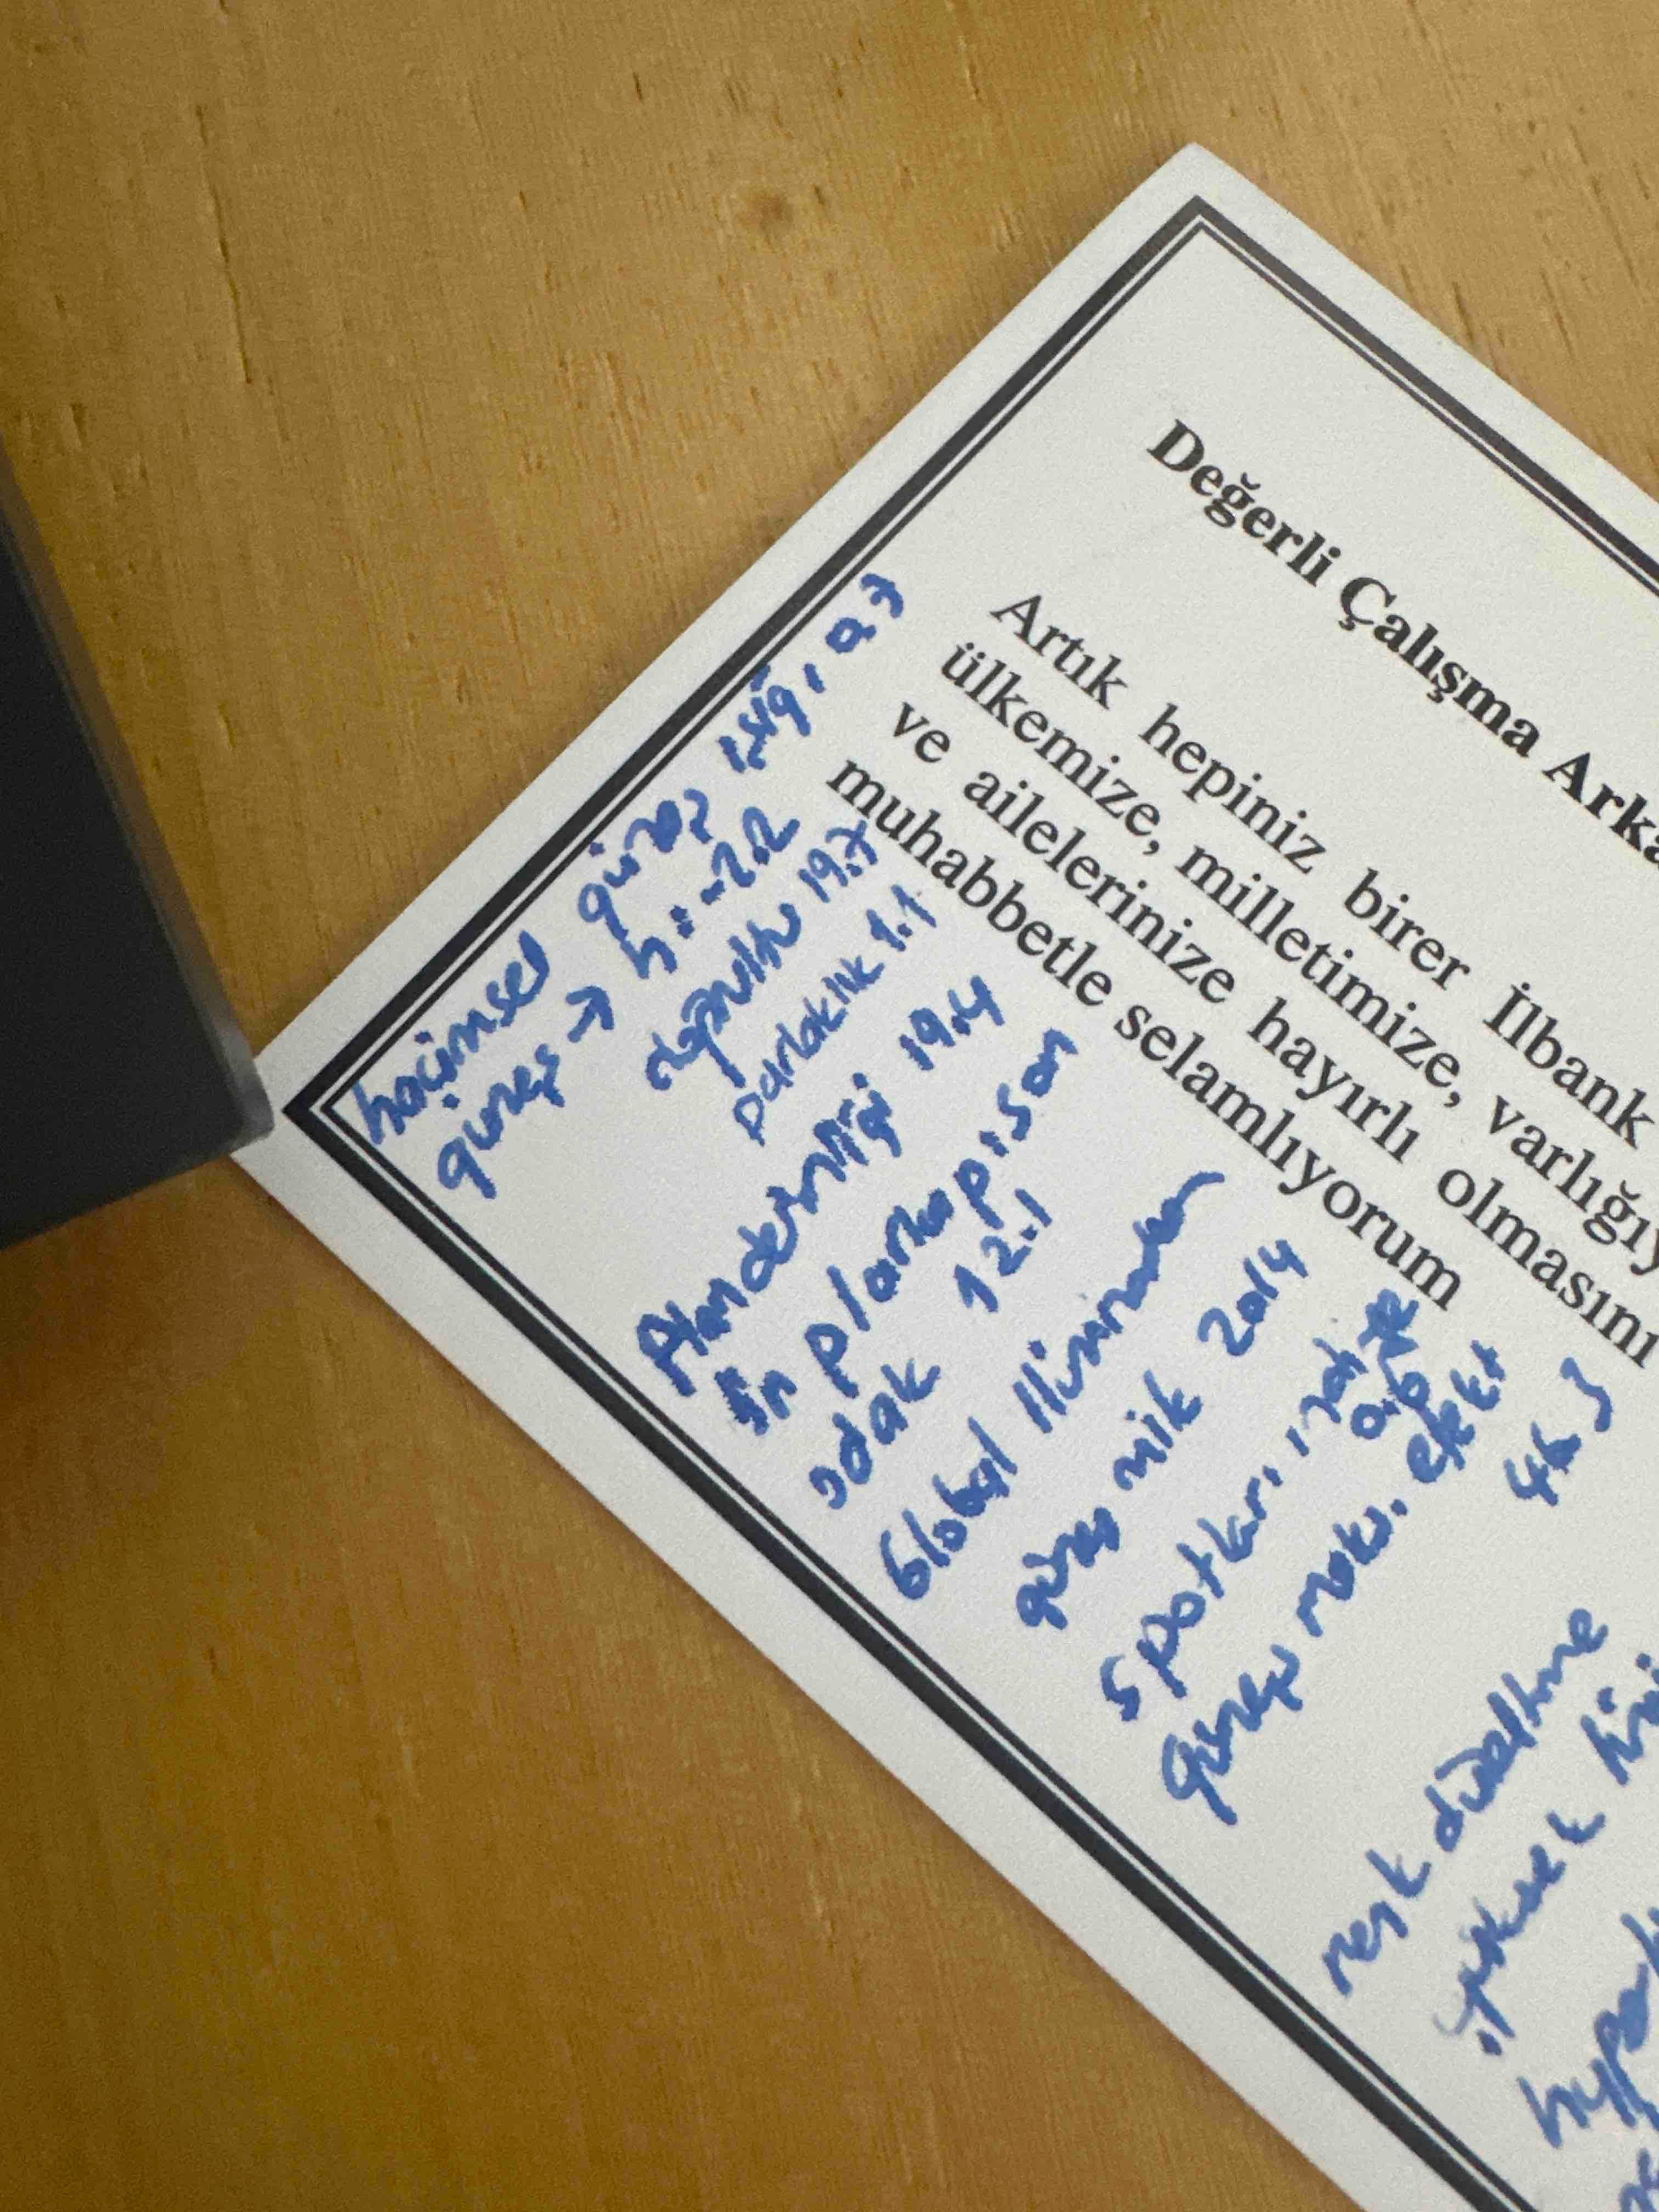 Değerli Çalışma Arka
Artık hepiniz birer İlbank
ülkemize, milletimize, varlığıy
ve ailelerinize hayırlı olmasını
muhabbetle selamlıyorum
hacimsel güneş ışığı 0.7
güneş → h: -2.2
doğrultu 19.7
parlaklık 1.1
Alan derinliği 19.4
odak 12.1
Global Illumination
güneş mik 2014
Spotları
güneş efekt
renk düzeltme
yüksek